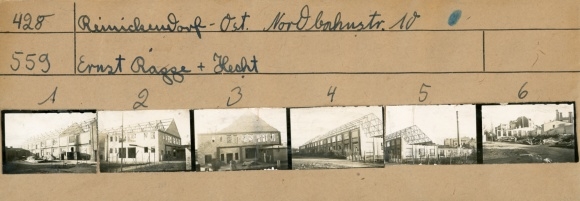 428 Reinickendorf-Ost. Nordbahnstr. 10
559 Ernst Ragge + Hecht
1 2 3 4 5 6